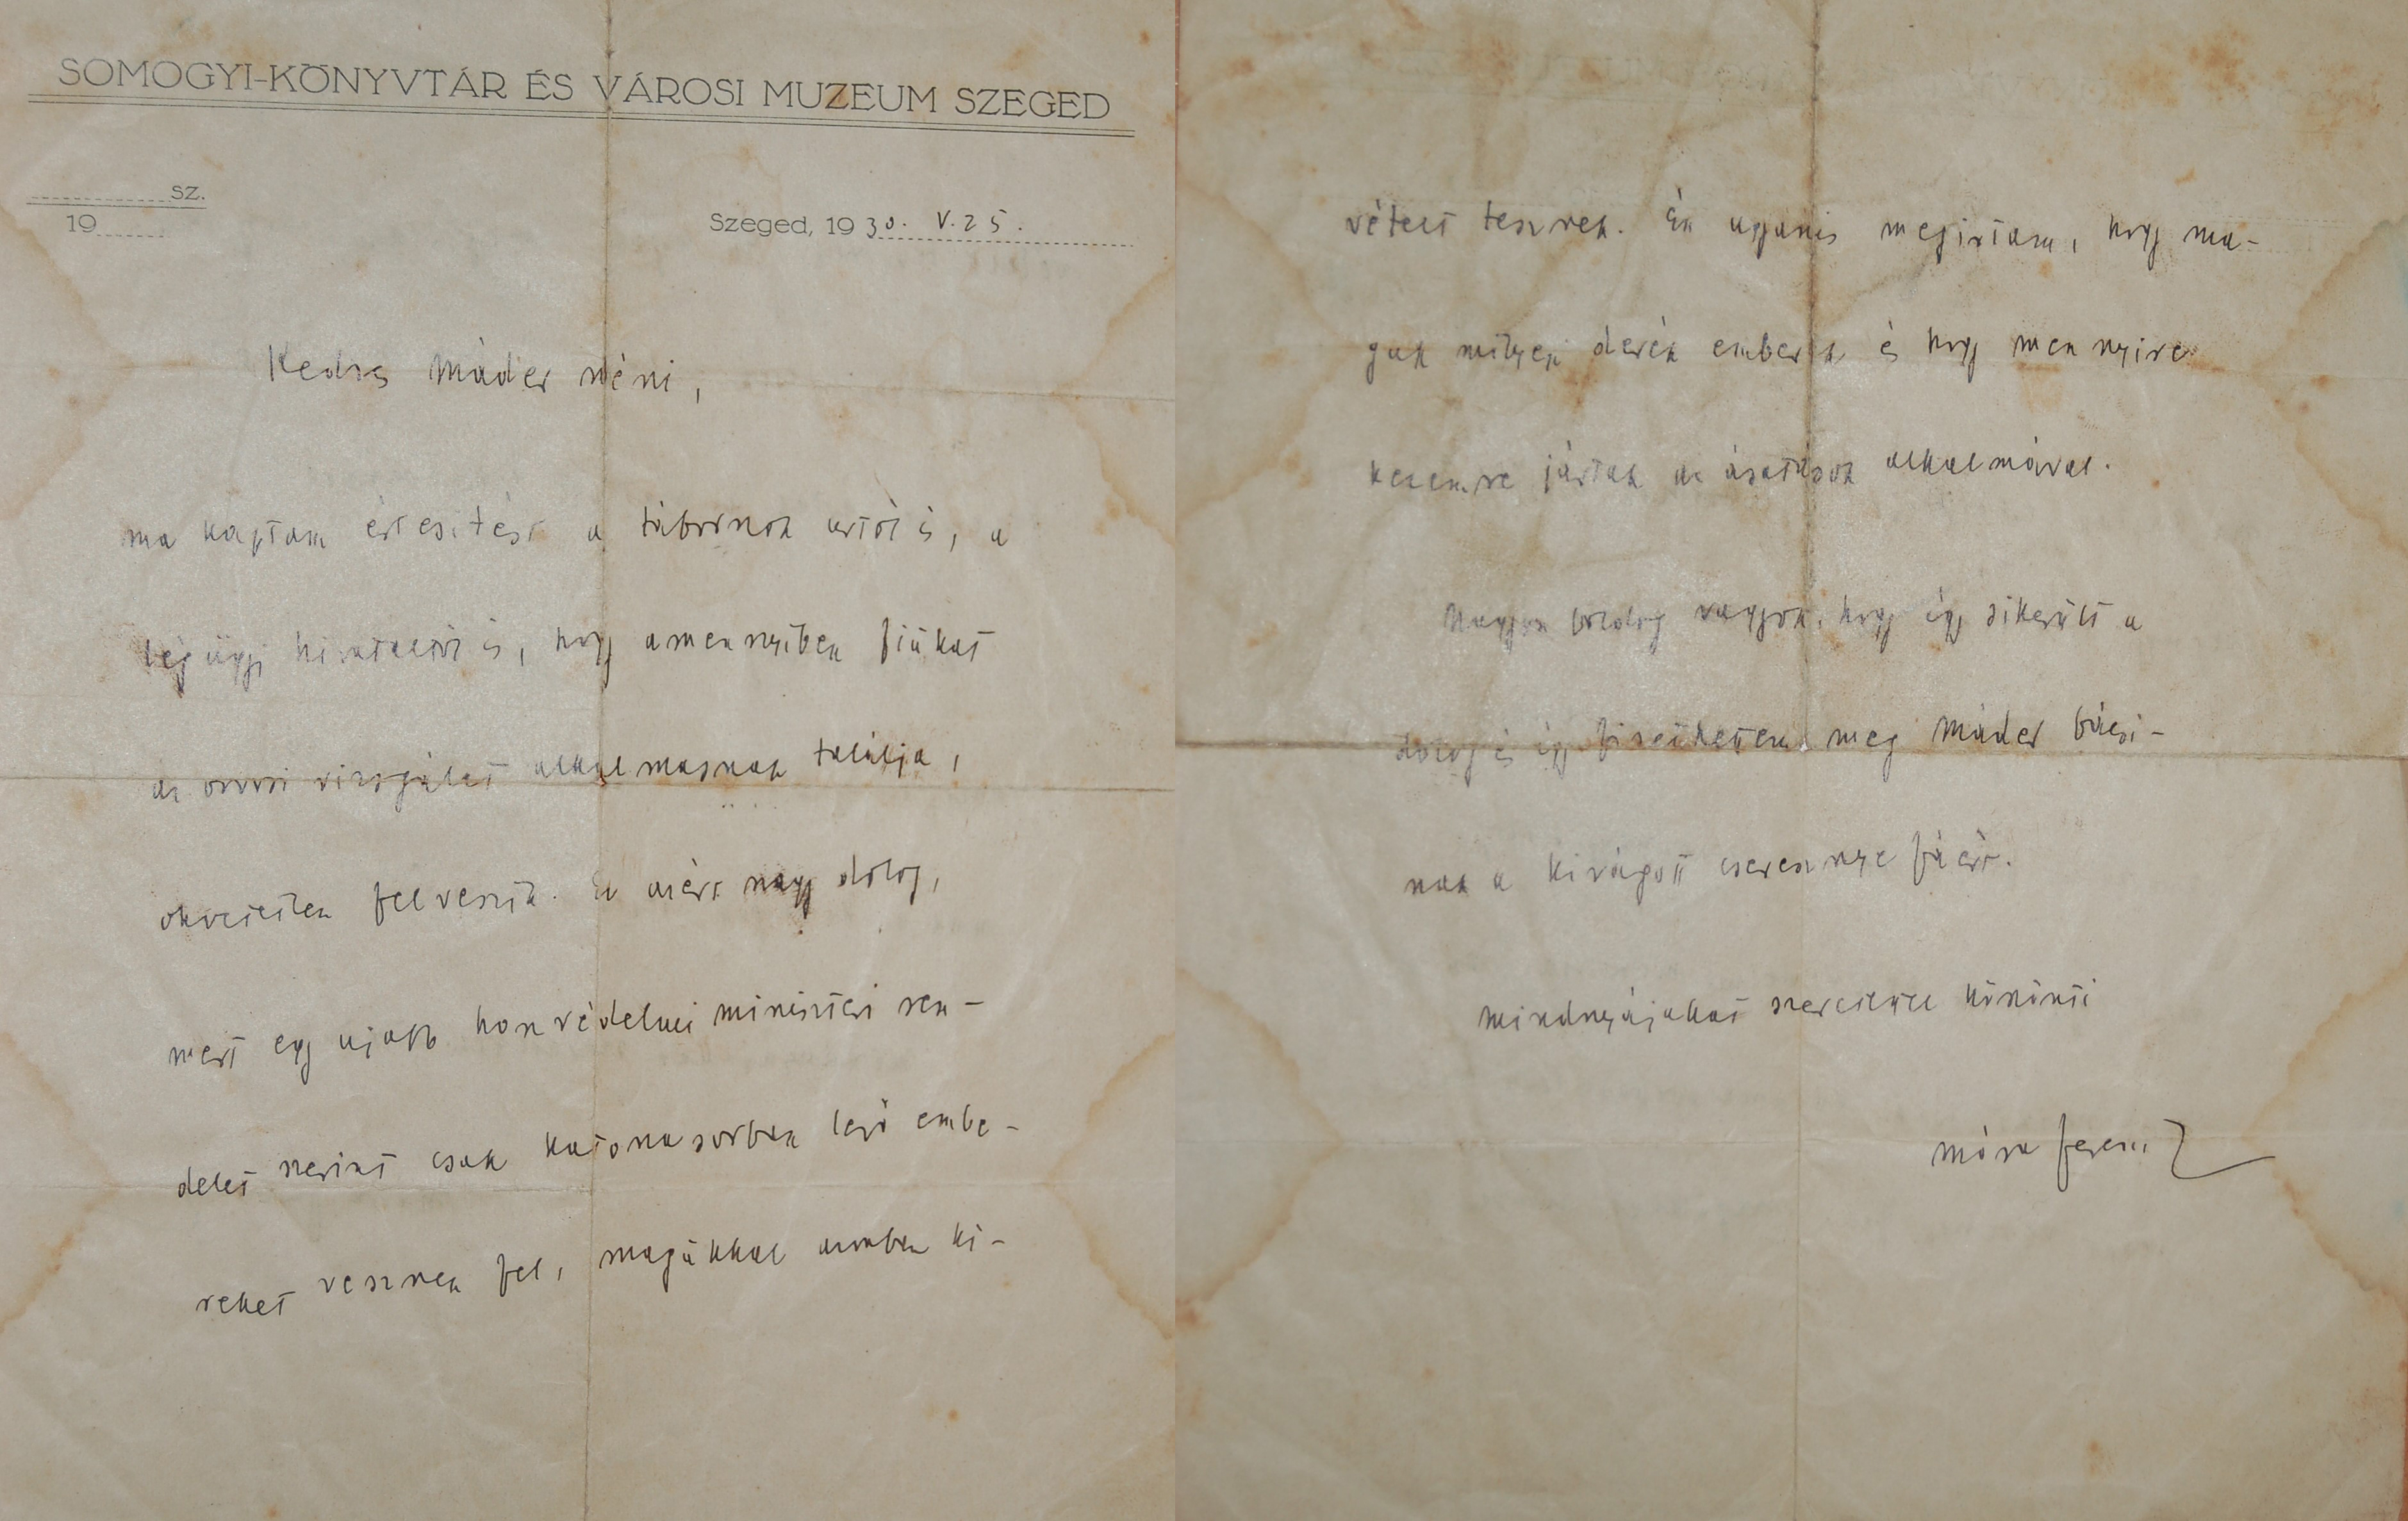 SOMOGYI-KÖNYVTÁR ÉS VÁROSI MUZEUM SZEGED
sz.
19
Szeged, 1930. V. 25.
Kedves Máder néni,
ma kaptam értesítést a tábornok urtól is, a
légügyi hivataltól is, hogy amennyiben fiukat
az orvosi vizsgálat alkalmasnak találja,
okvetetlen felveszik. Ez azért nagy dolog,
mert egy ujabb honvédelmi miniszteri ren-
delet szerint csak katonasorban levő embe-
reket vesznek fel, magukkal azonban ki-
vételt tesznek. Én ugyanis megirtam, hogy ma-
guk milyen derék emberek és hogy mennyire
kezemre jártak az ásatások alkalmával.
Nagyon boldog vagyok, hogy igy sikerült a
dolog és igy fizethettem meg Máder bácsi-
nak a kivágott cseresznye fáért.
Mindnyájukat szeretettel köszönti
Móra Ferenc